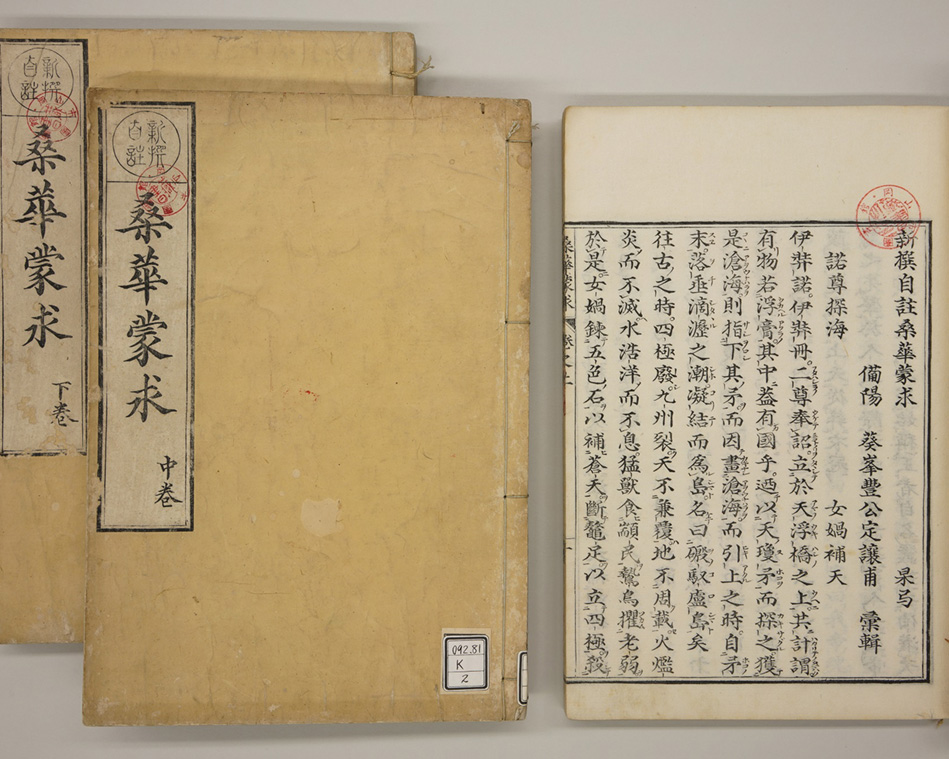 新撰自註桑華蒙求
備陽 葵峯豐公定讓甫 彙輯
諾尊探海 女媧補天
伊弉諾伊弉冊二尊奉詔立於天浮橋之上其計謂
有物若浮膏其中蓋有國乎迺以天瓊矛而探之獲
是滄海則指下其矛而因畫滄海而引上之時自矛
末落垂滴瀝之潮凝結而為島名曰磤馭盧島矣
往古之時四極廢九州裂天不兼覆地不周載火爁
炎而不滅水浩洋而不息猛獸食顓民鷙鳥攫老弱
於是女媧鍊五色石以補蒼天斷鼇足以立四極殺
桑華蒙求
新撰
自註
桑華蒙求
中卷
092.81
K
2
新撰
自註
桑華蒙求
下卷